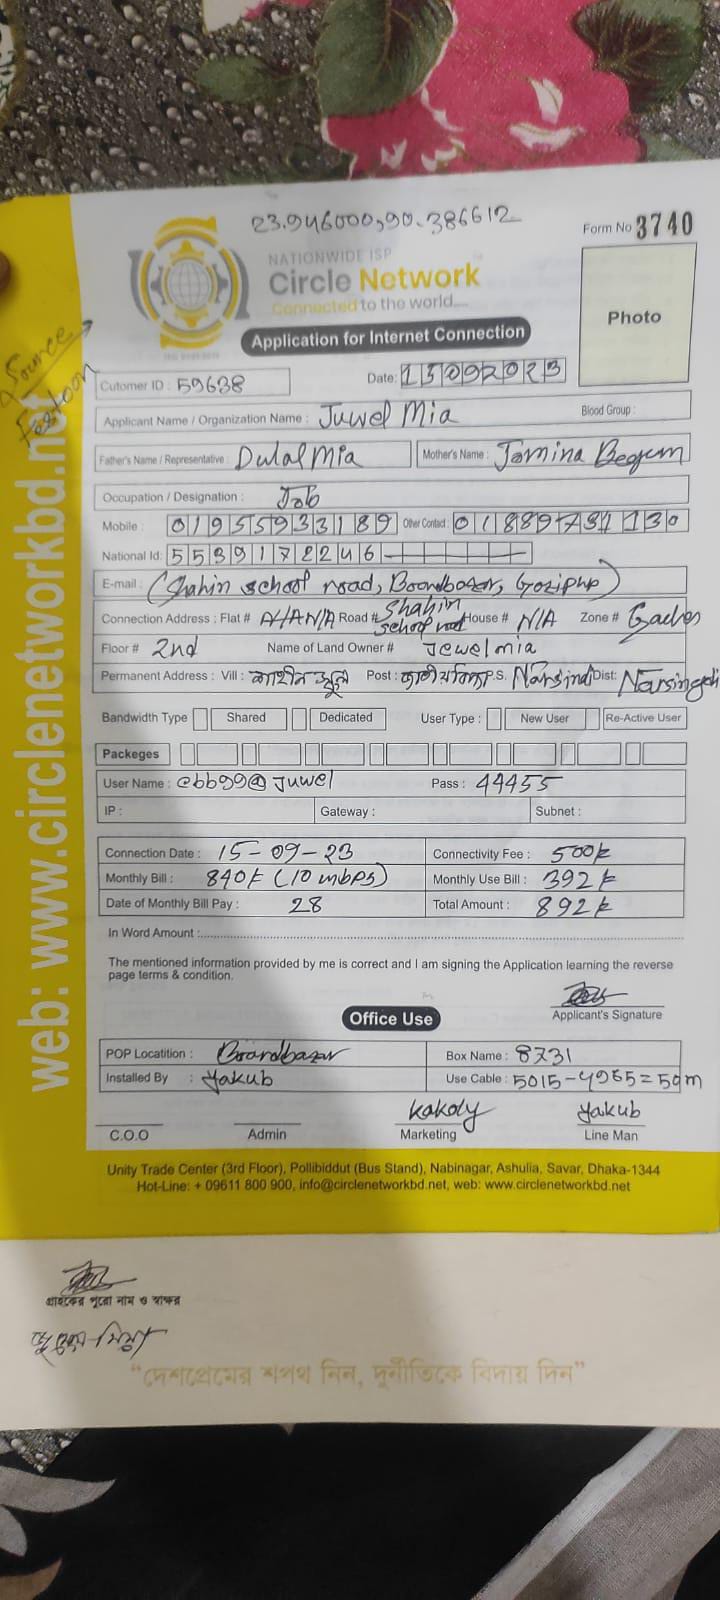 23.946000,90.386612
Form No 3740
NATIONWIDE ISP
Circle Network
Connected to the world....
Photo
Application for Internet Connection
Source
Festoon
Cutomer ID : 59638
Date: 15092023
Applicant Name / Organization Name : Juwel Mia Blood Group :
Father's Name / Representative : Dulal Mia Mother's Name : Jomina Begum
Occupation / Designation : Job
Mobile : 01955933189 Other Contact : 01889731130
National Id: 5539172246
E-mail : (Shahin school road, Boardbazar, Gazipur)
Connection Address : Flat # N/A N/A Road # Shahin school road House # N/A Zone #
Floor # 2nd Name of Land Owner # Jewel mia
Permanent Address : Vill : Post : P.S. Narsindi Dist: Narsingdi
Bandwidth Type Shared Dedicated User Type : New User Re-Active User
Packeges
User Name : cbb99@Juwel Pass : 44455
IP : Gateway : Subnet :
Connection Date : 15-09-23 Connectivity Fee : 500k
Monthly Bill : 840k (10 mbps) Monthly Use Bill : 392k
Date of Monthly Bill Pay : 28 Total Amount : 892k
In Word Amount :
The mentioned information provided by me is correct and I am signing the Application learning the reverse
page terms & condition.
Applicant's Signature
Office Use
POP Locatition : Boardbazar Box Name : 8731
Installed By : Yakub Use Cable : 5015-4965=50m
kakoly Yakub
C.O.O Admin Marketing Line Man
Unity Trade Center (3rd Floor), Pollibiddut (Bus Stand), Nabinagar, Ashulia, Savar, Dhaka-1344
Hot-Line: + 09611 800 900, info@circlenetworkbd.net, web: www.circlenetworkbd.net
web: www.circlenetworkbd.net
গ্রাহকের পুরো নাম ও স্বাক্ষর
জুয়েল মিয়া
"দেশপ্রেমের শপথ নিন, দুর্নীতিকে বিদায় দিন"